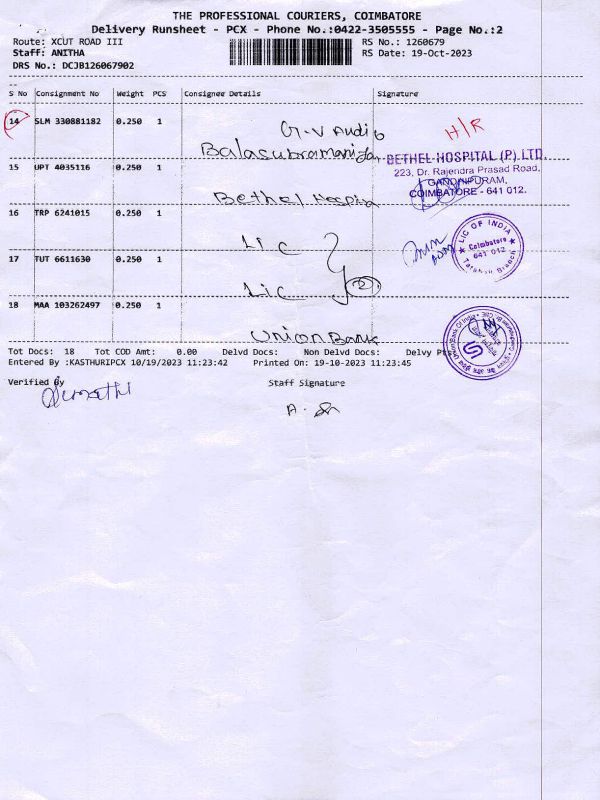 THE PROFESSIONAL COURIERS, COIMBATORE
Delivery Runsheet - PCX - Phone No.:0422-3505555 - Page No.:2
Route: XCUT ROAD III RS No.: 1260679
Staff: ANITHA RS Date: 19-Oct-2023
DRS No.: DCJB126067902
S No Consignment No Weight PCS Consignee Details Signature
14 SLM 330881182 0.250 1
G.V Audio
H/R
Balasubramaniyan
BETHEL HOSPITAL (P) LTD
15 UPT 4035116 0.250 1
223, Dr. Rajendra Prasad Road,
GANDHIPURAM,
COIMBATORE - 641 012.
Bethel Hospital
16 TRP 6241015 0.250 1
LIC
LIC OF INDIA
Coimbatore
641 012
Branch
17 TUT 6611630 0.250 1
LIC 2
18 MAA 103262497 0.250 1
Union Bank
Tot Docs: 18 Tot COD Amt: 0.00 Delvd Docs: Non Delvd Docs: Delvy Pts
Entered By :KASTHURIPCX 10/19/2023 11:23:42 Printed On: 19-10-2023 11:23:45
Verified By Staff Signature